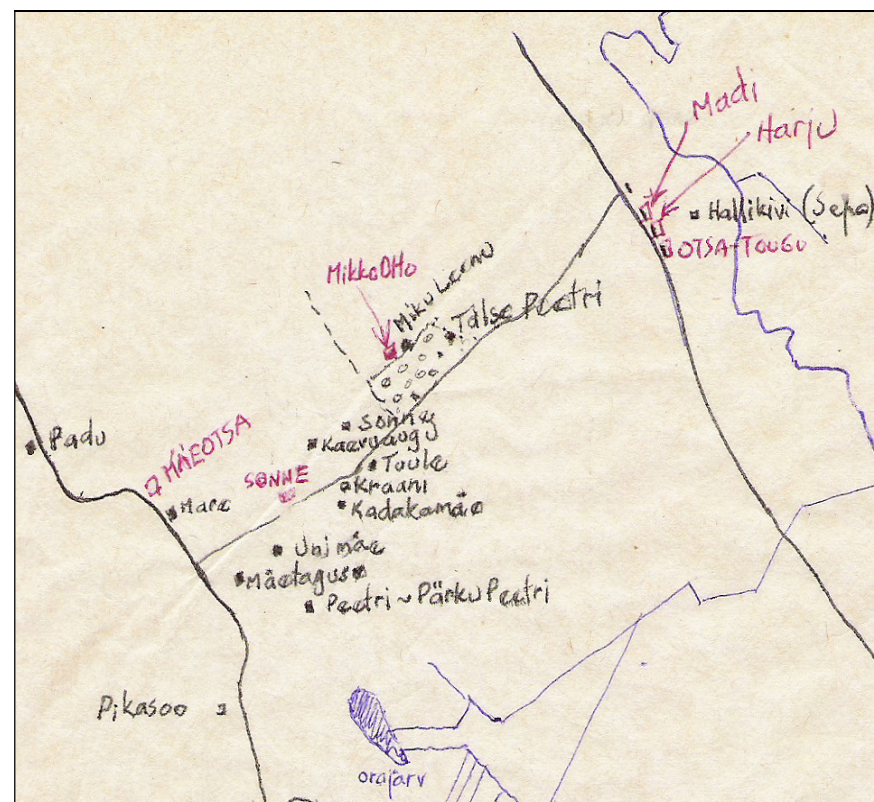 Madi
Harju
Hallikivi (Sepa)
OTSA-TOUGU
MikkoOHo
Miku Leenu
Talse Peetri
Sonne
Kaevuaugu
Tuule
Kraani
Kadakamäe
Padu
MÄEOTSA
SONNE
Mare
Unimäe
Mäetaguse
Peetri ~ Pärku Peetri
Pikasoo
orajärv